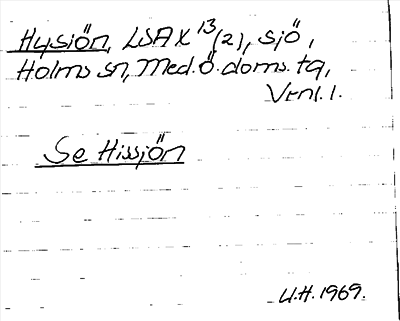 Hysjön, LSA X 13 (2), sjö,
Holms sn, Med. Ö. doms. tg,
Vrnl. l.
Se Hissjön
U.H. 1969.